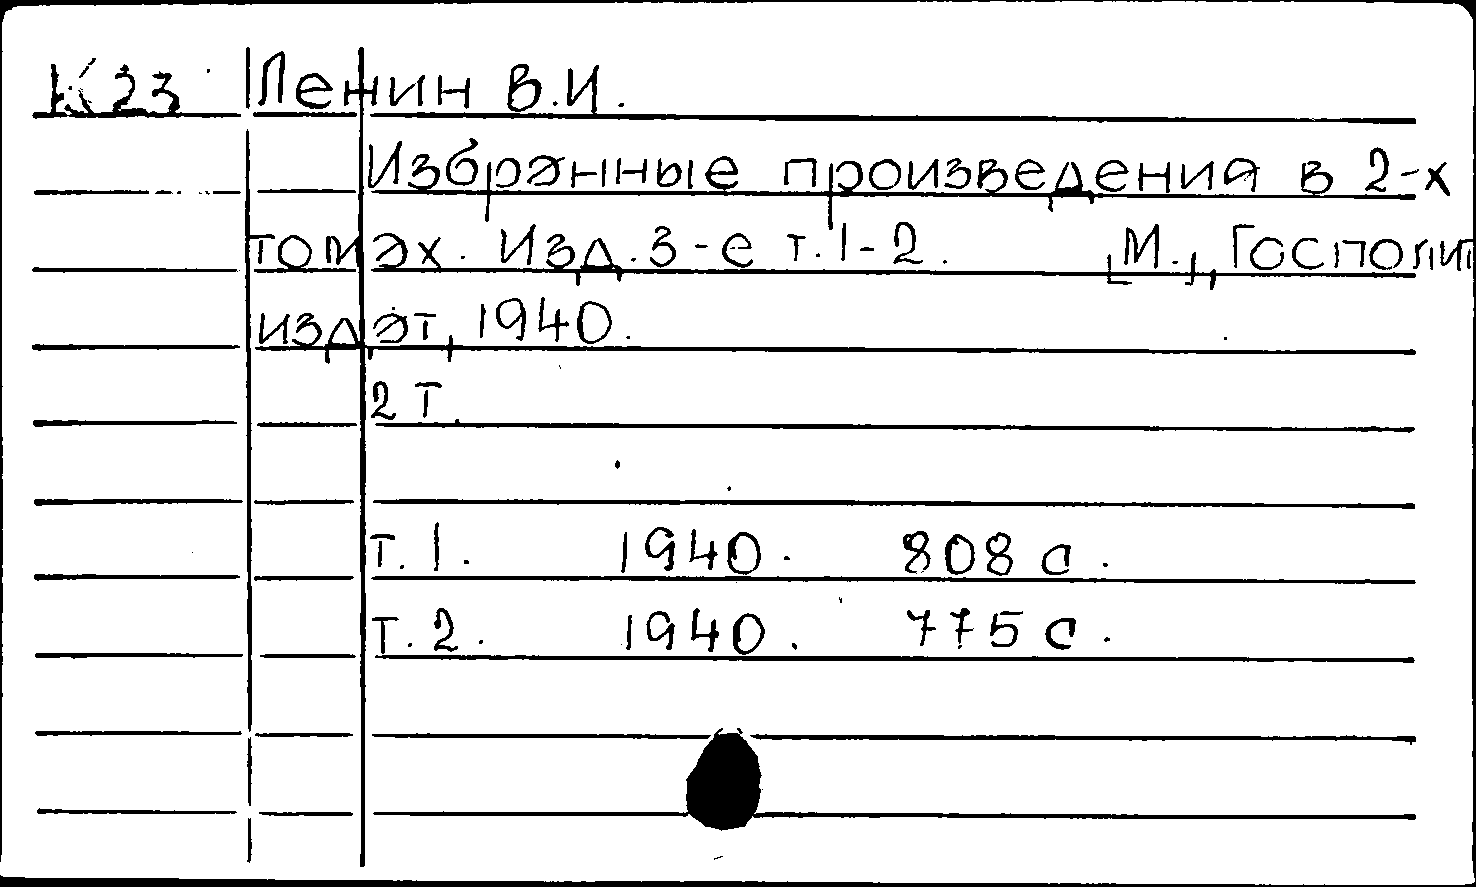 К23 Ленин В.И.
Избранные произведения в 2-х
томах. Изд. 3-е т. 1-2. [М.], Госполит
издат, 1940.
2 т.
т. 1. 1940. 808 с.
т. 2. 1940. 775 с.